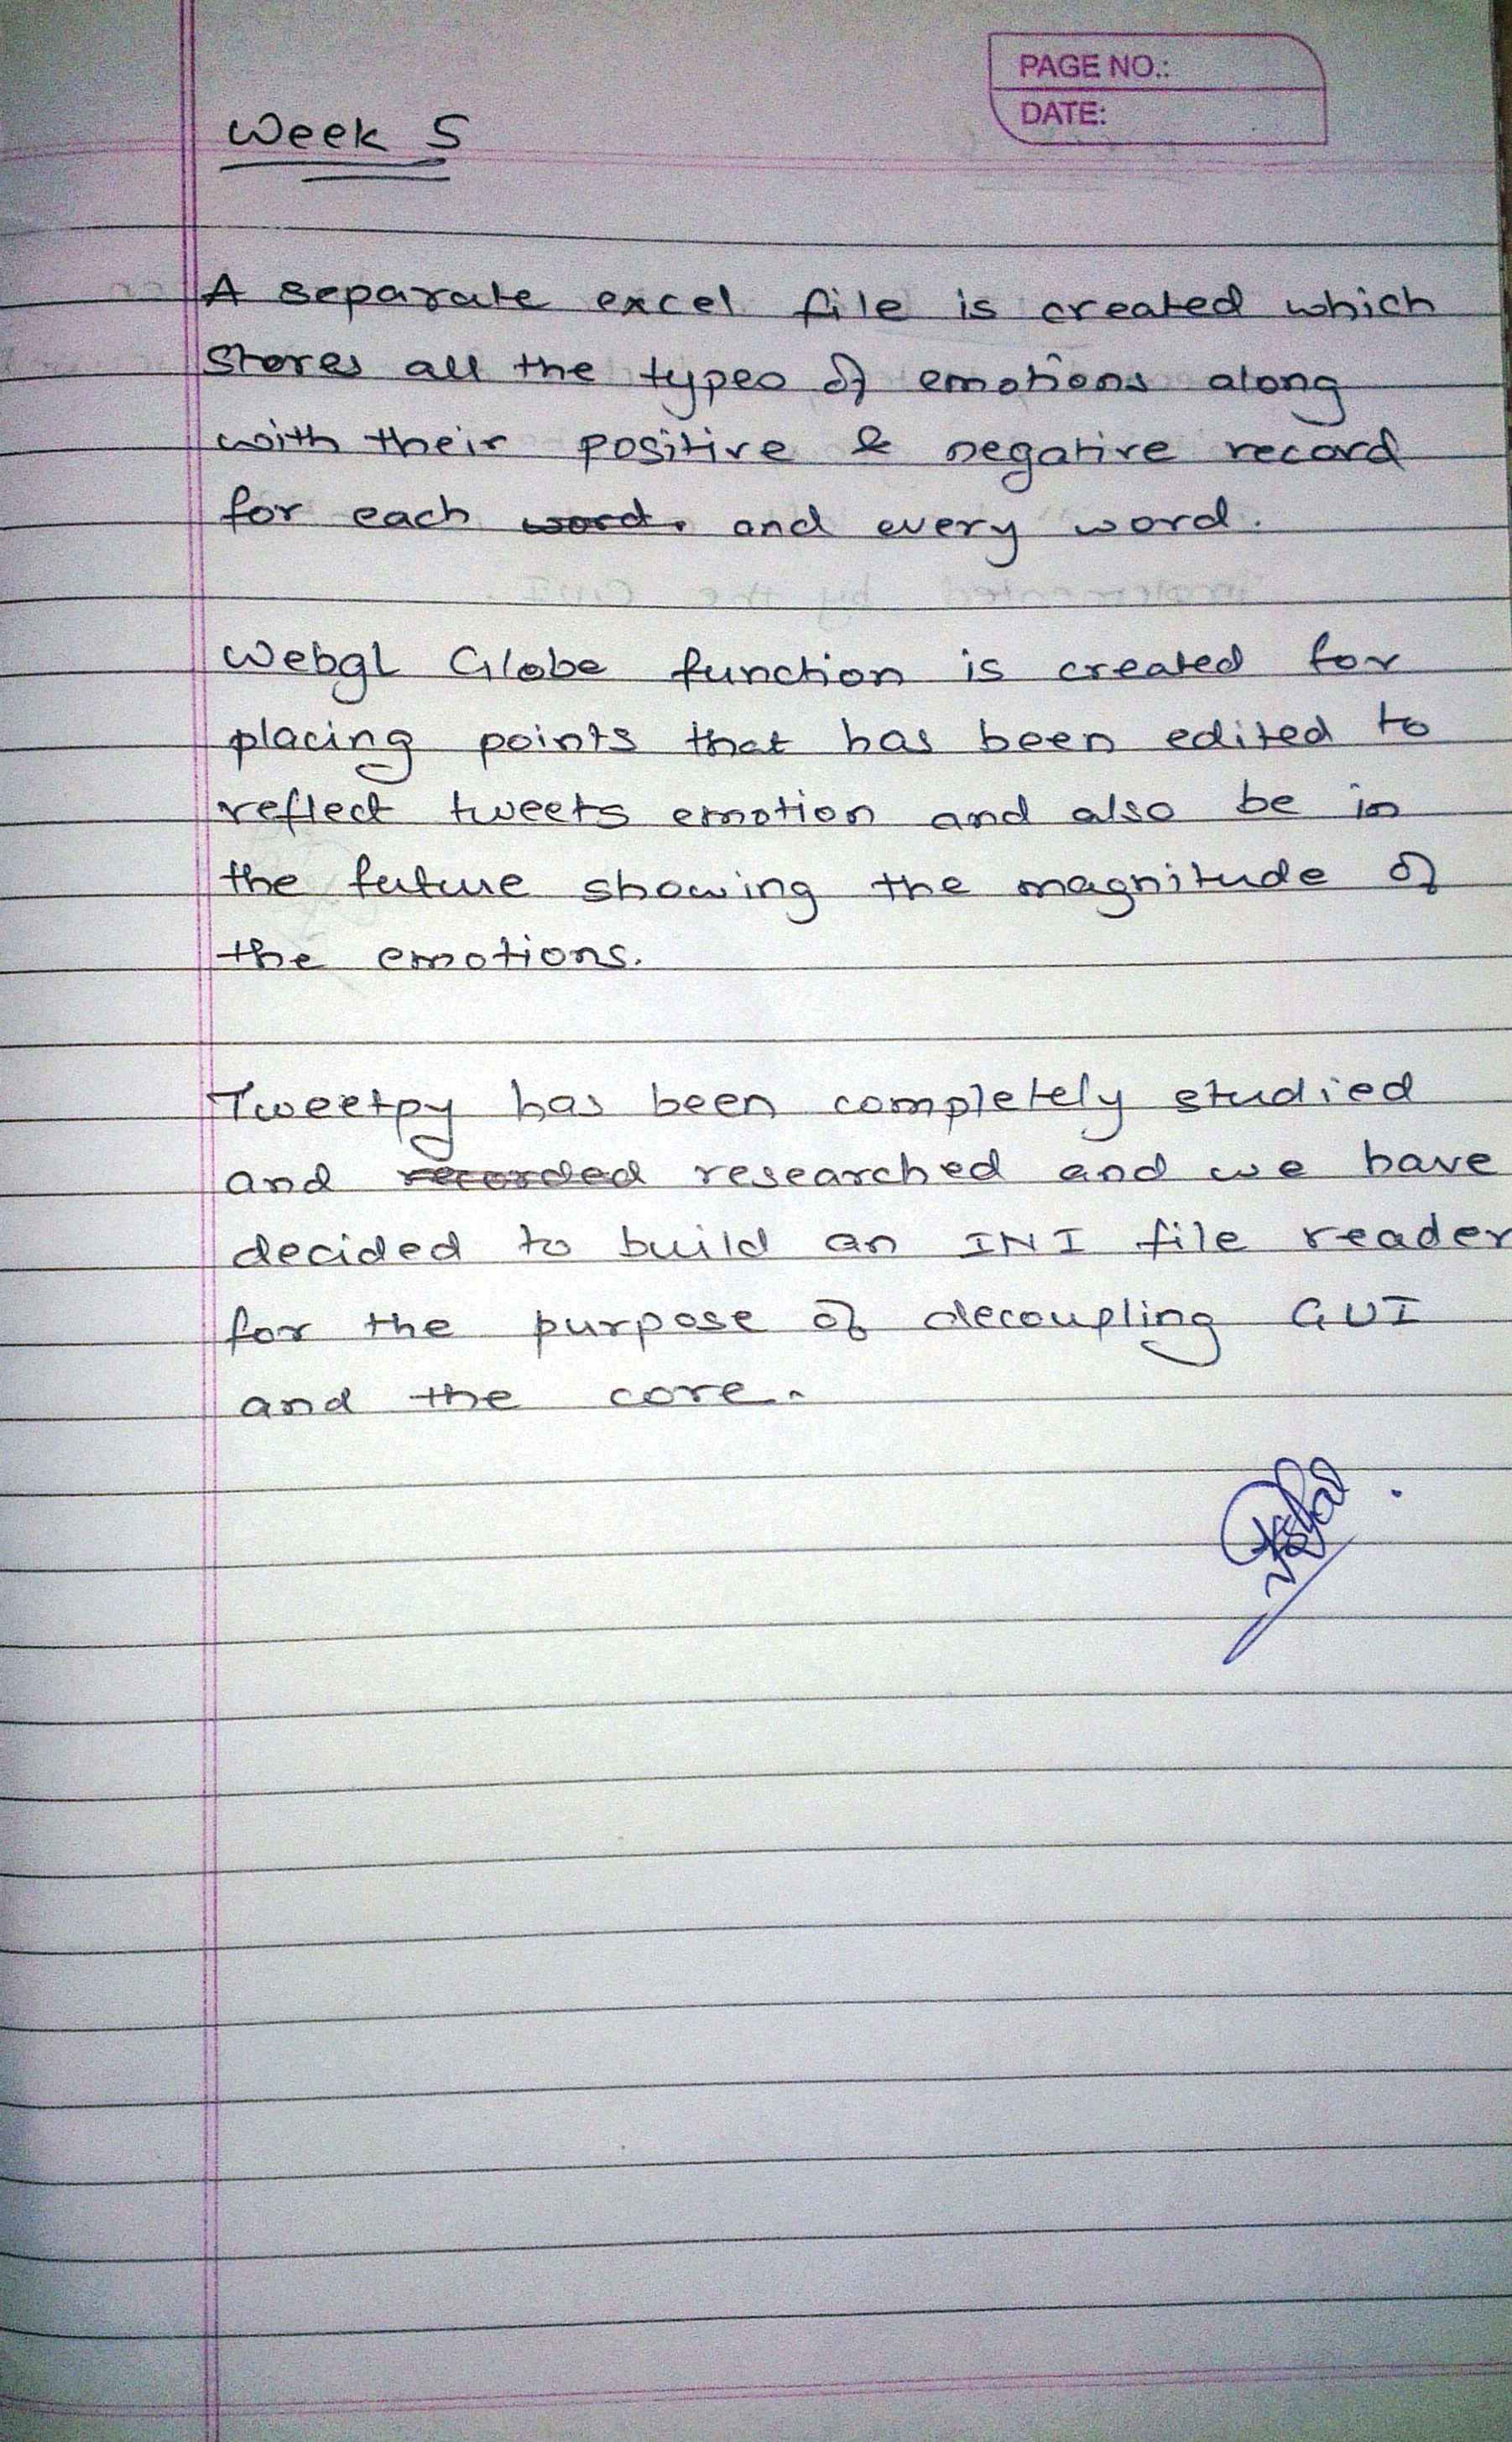 PAGE NO.:
DATE:
Week 5
A separate excel file is created which
stores all the types of emotions along
with their positive & negative record
for each word. and every word.
Webgl Globe function is created for
placing points that has been edited to
reflect tweets emotion and also be in
the future showing the magnitude of
the emotions.
Tweetpy has been completely studied
and recorded researched and we have
decided to build an INI file reader
for the purpose of decoupling GUI
and the core.